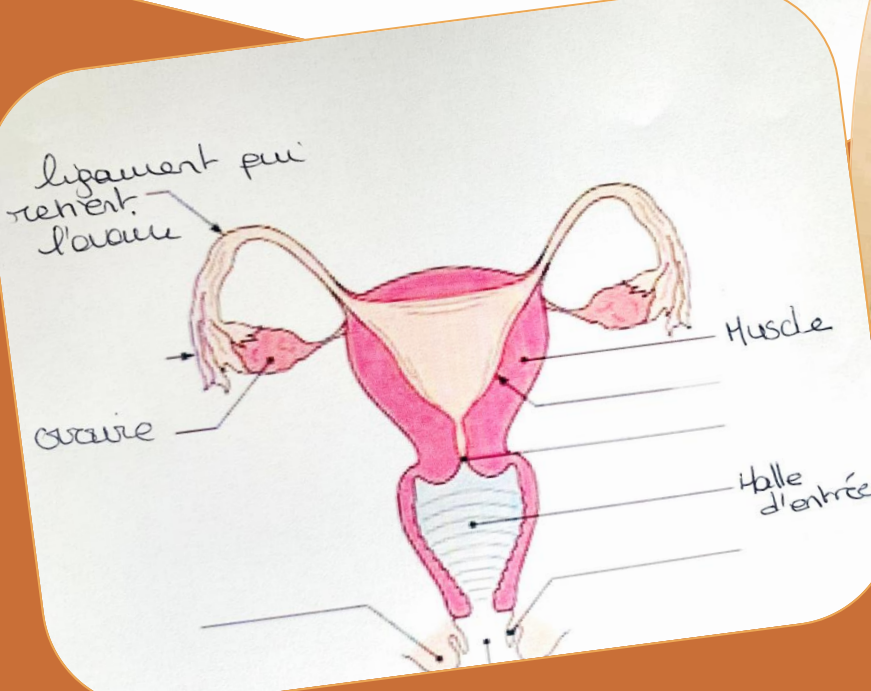 ligament qui
retient
l'ovaire
ovaire
Muscle
Halle
d'entrée